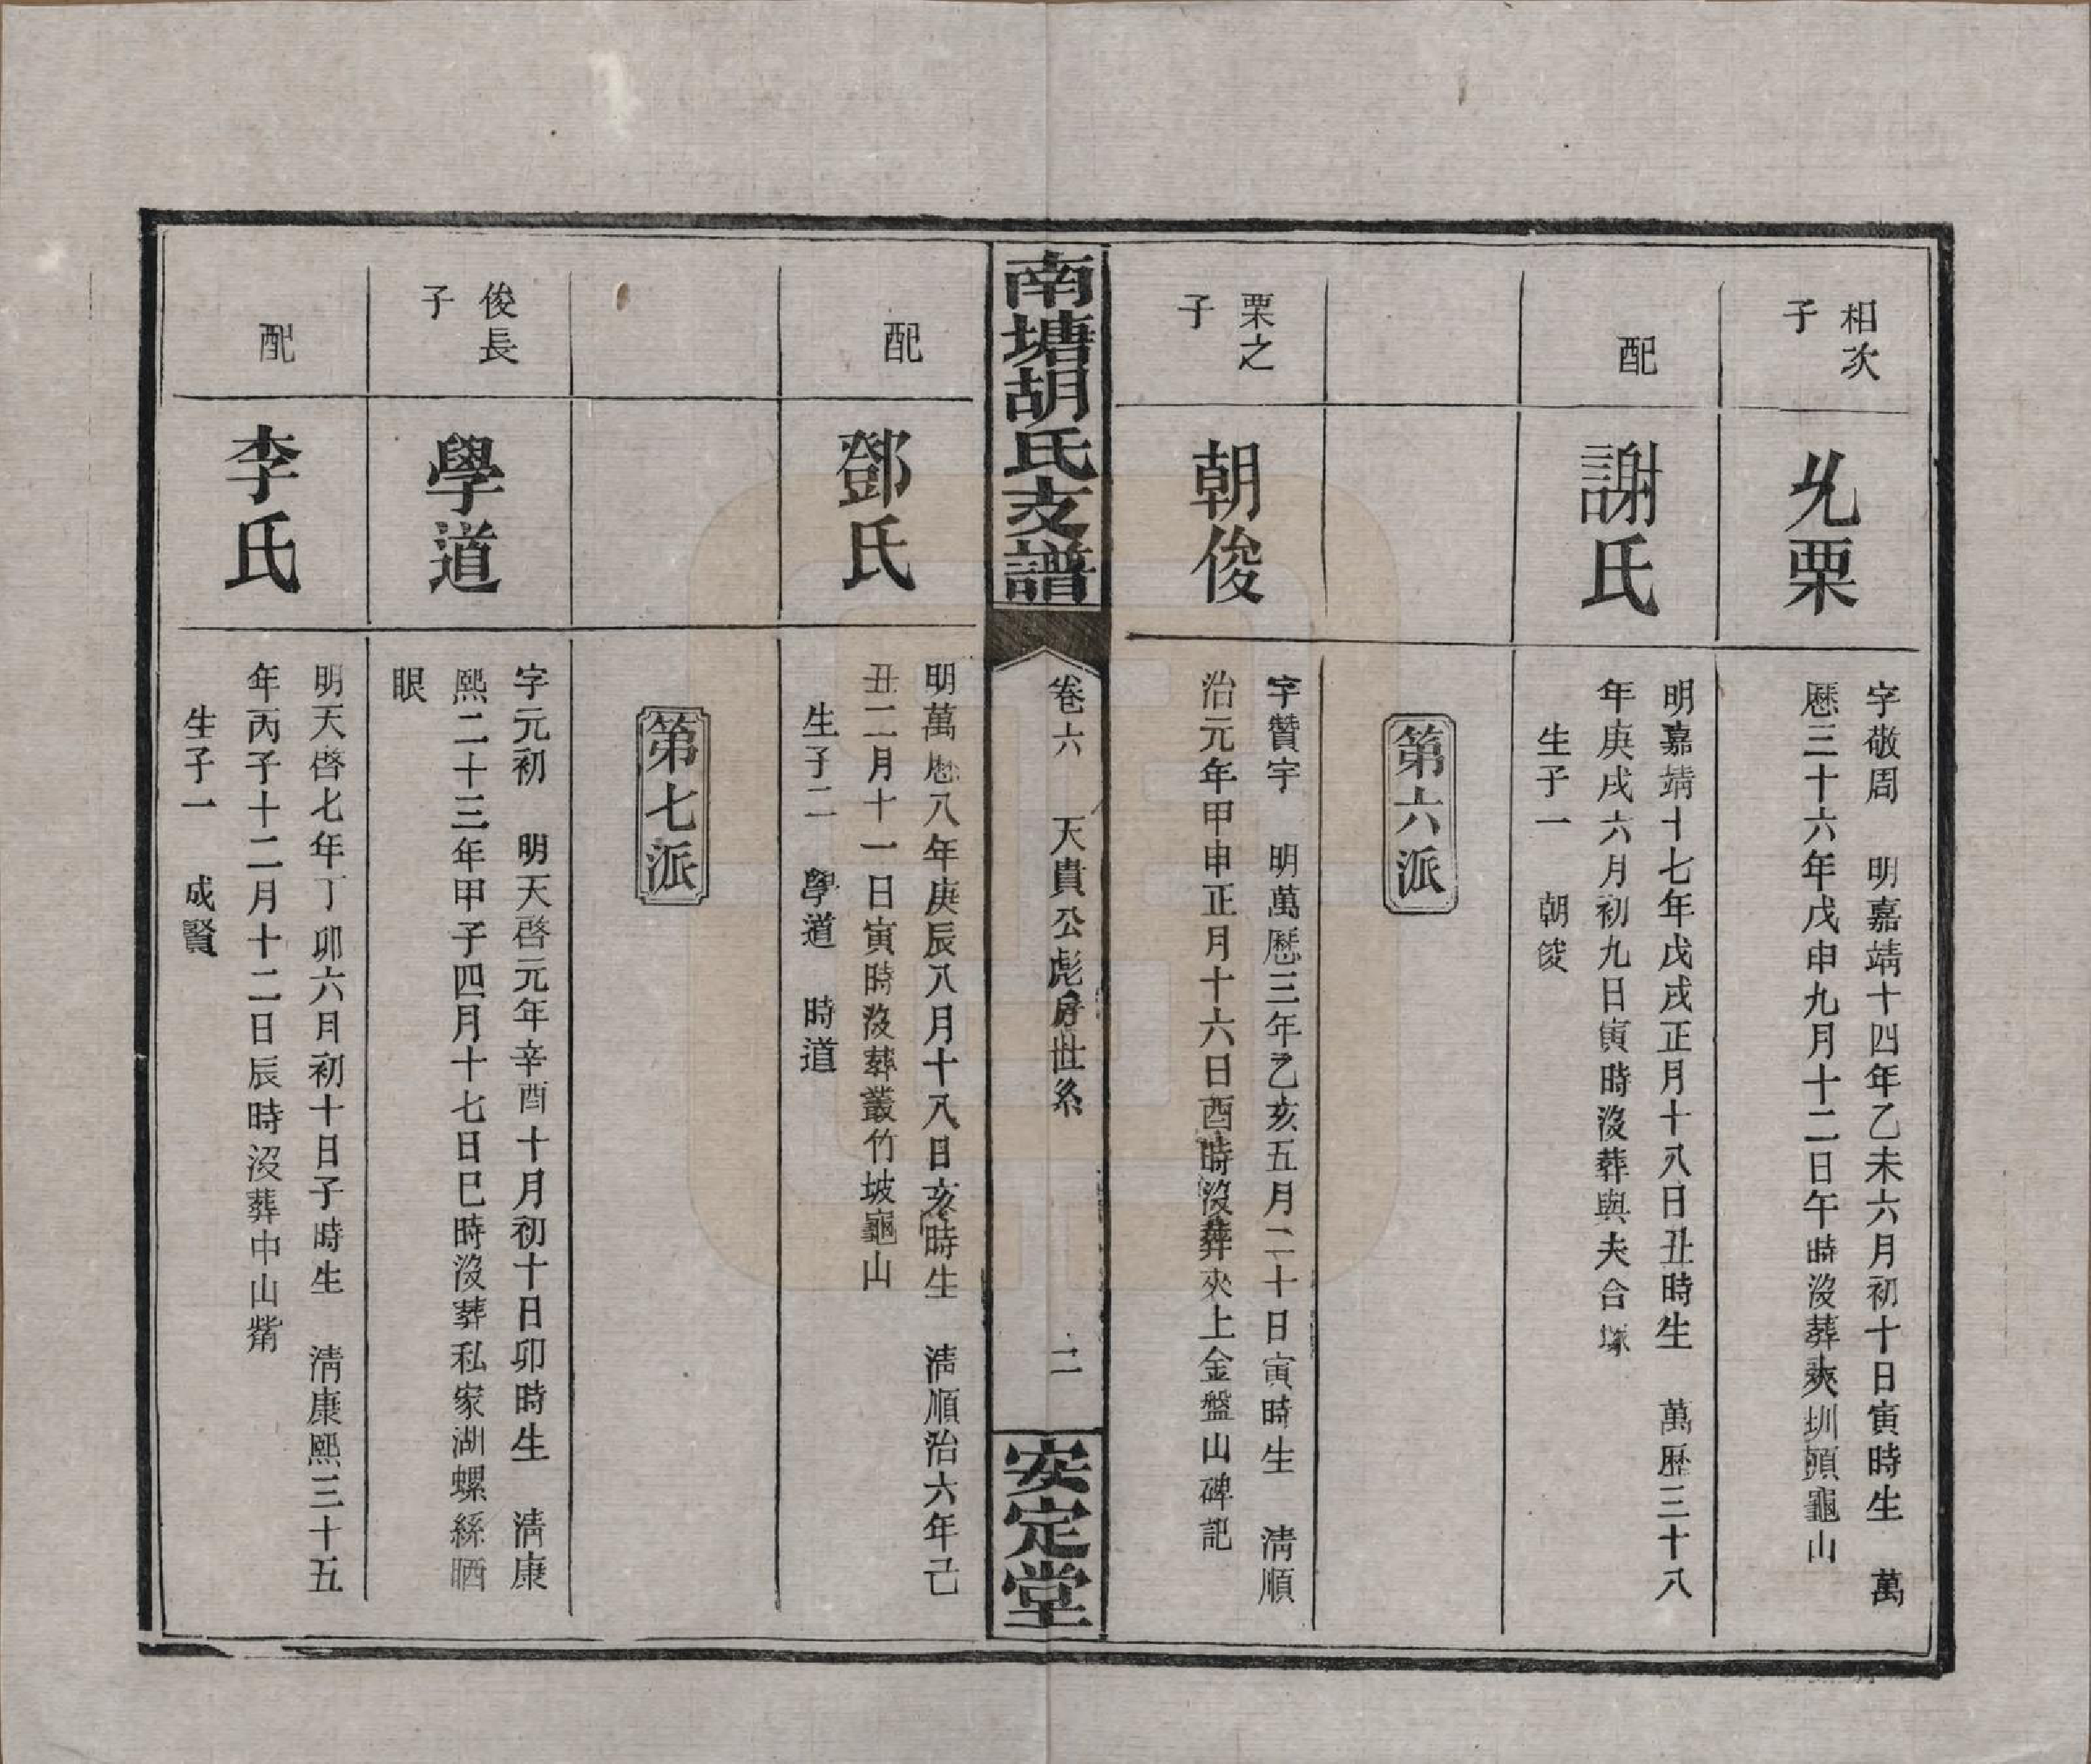 相次
子
栗
字敬周　明嘉靖十四年乙未六月初十日寅時生　萬
歷三十六年戊申九月十二日午時沒葬夾圳頭龜山
配
謝氏
明嘉靖十七年戊戌正月十八日丑時生　萬歷三十八
年庚戌六月初九日寅時沒葬與夫合塚
生子一　朝俊
第六派
栗之
子
朝俊
字贊宇　明萬歷三年乙亥五月二十日寅時生　清順
治元年甲申正月十六日酉時沒葬夾上金盤山碑記
南塘胡氏支譜
卷六　天貴公彪房世系　二
安定堂
配
鄧氏
明萬歷八年庚辰八月十八日亥時生　清順治六年己
丑二月十一日寅時沒葬叢竹坡龜山
生子二　學道　時道
第七派
俊長
子
學道
字元初　明天啓元年辛酉十月初十日卯時生　清康
熙二十三年甲子四月十七日巳時沒葬私家湖螺絲晒
眼
配
李氏
明天啓七年丁卯六月初十日子時生　清康熙三十五
年丙子十二月十二日辰時沒葬中山觜
生子一　成賢